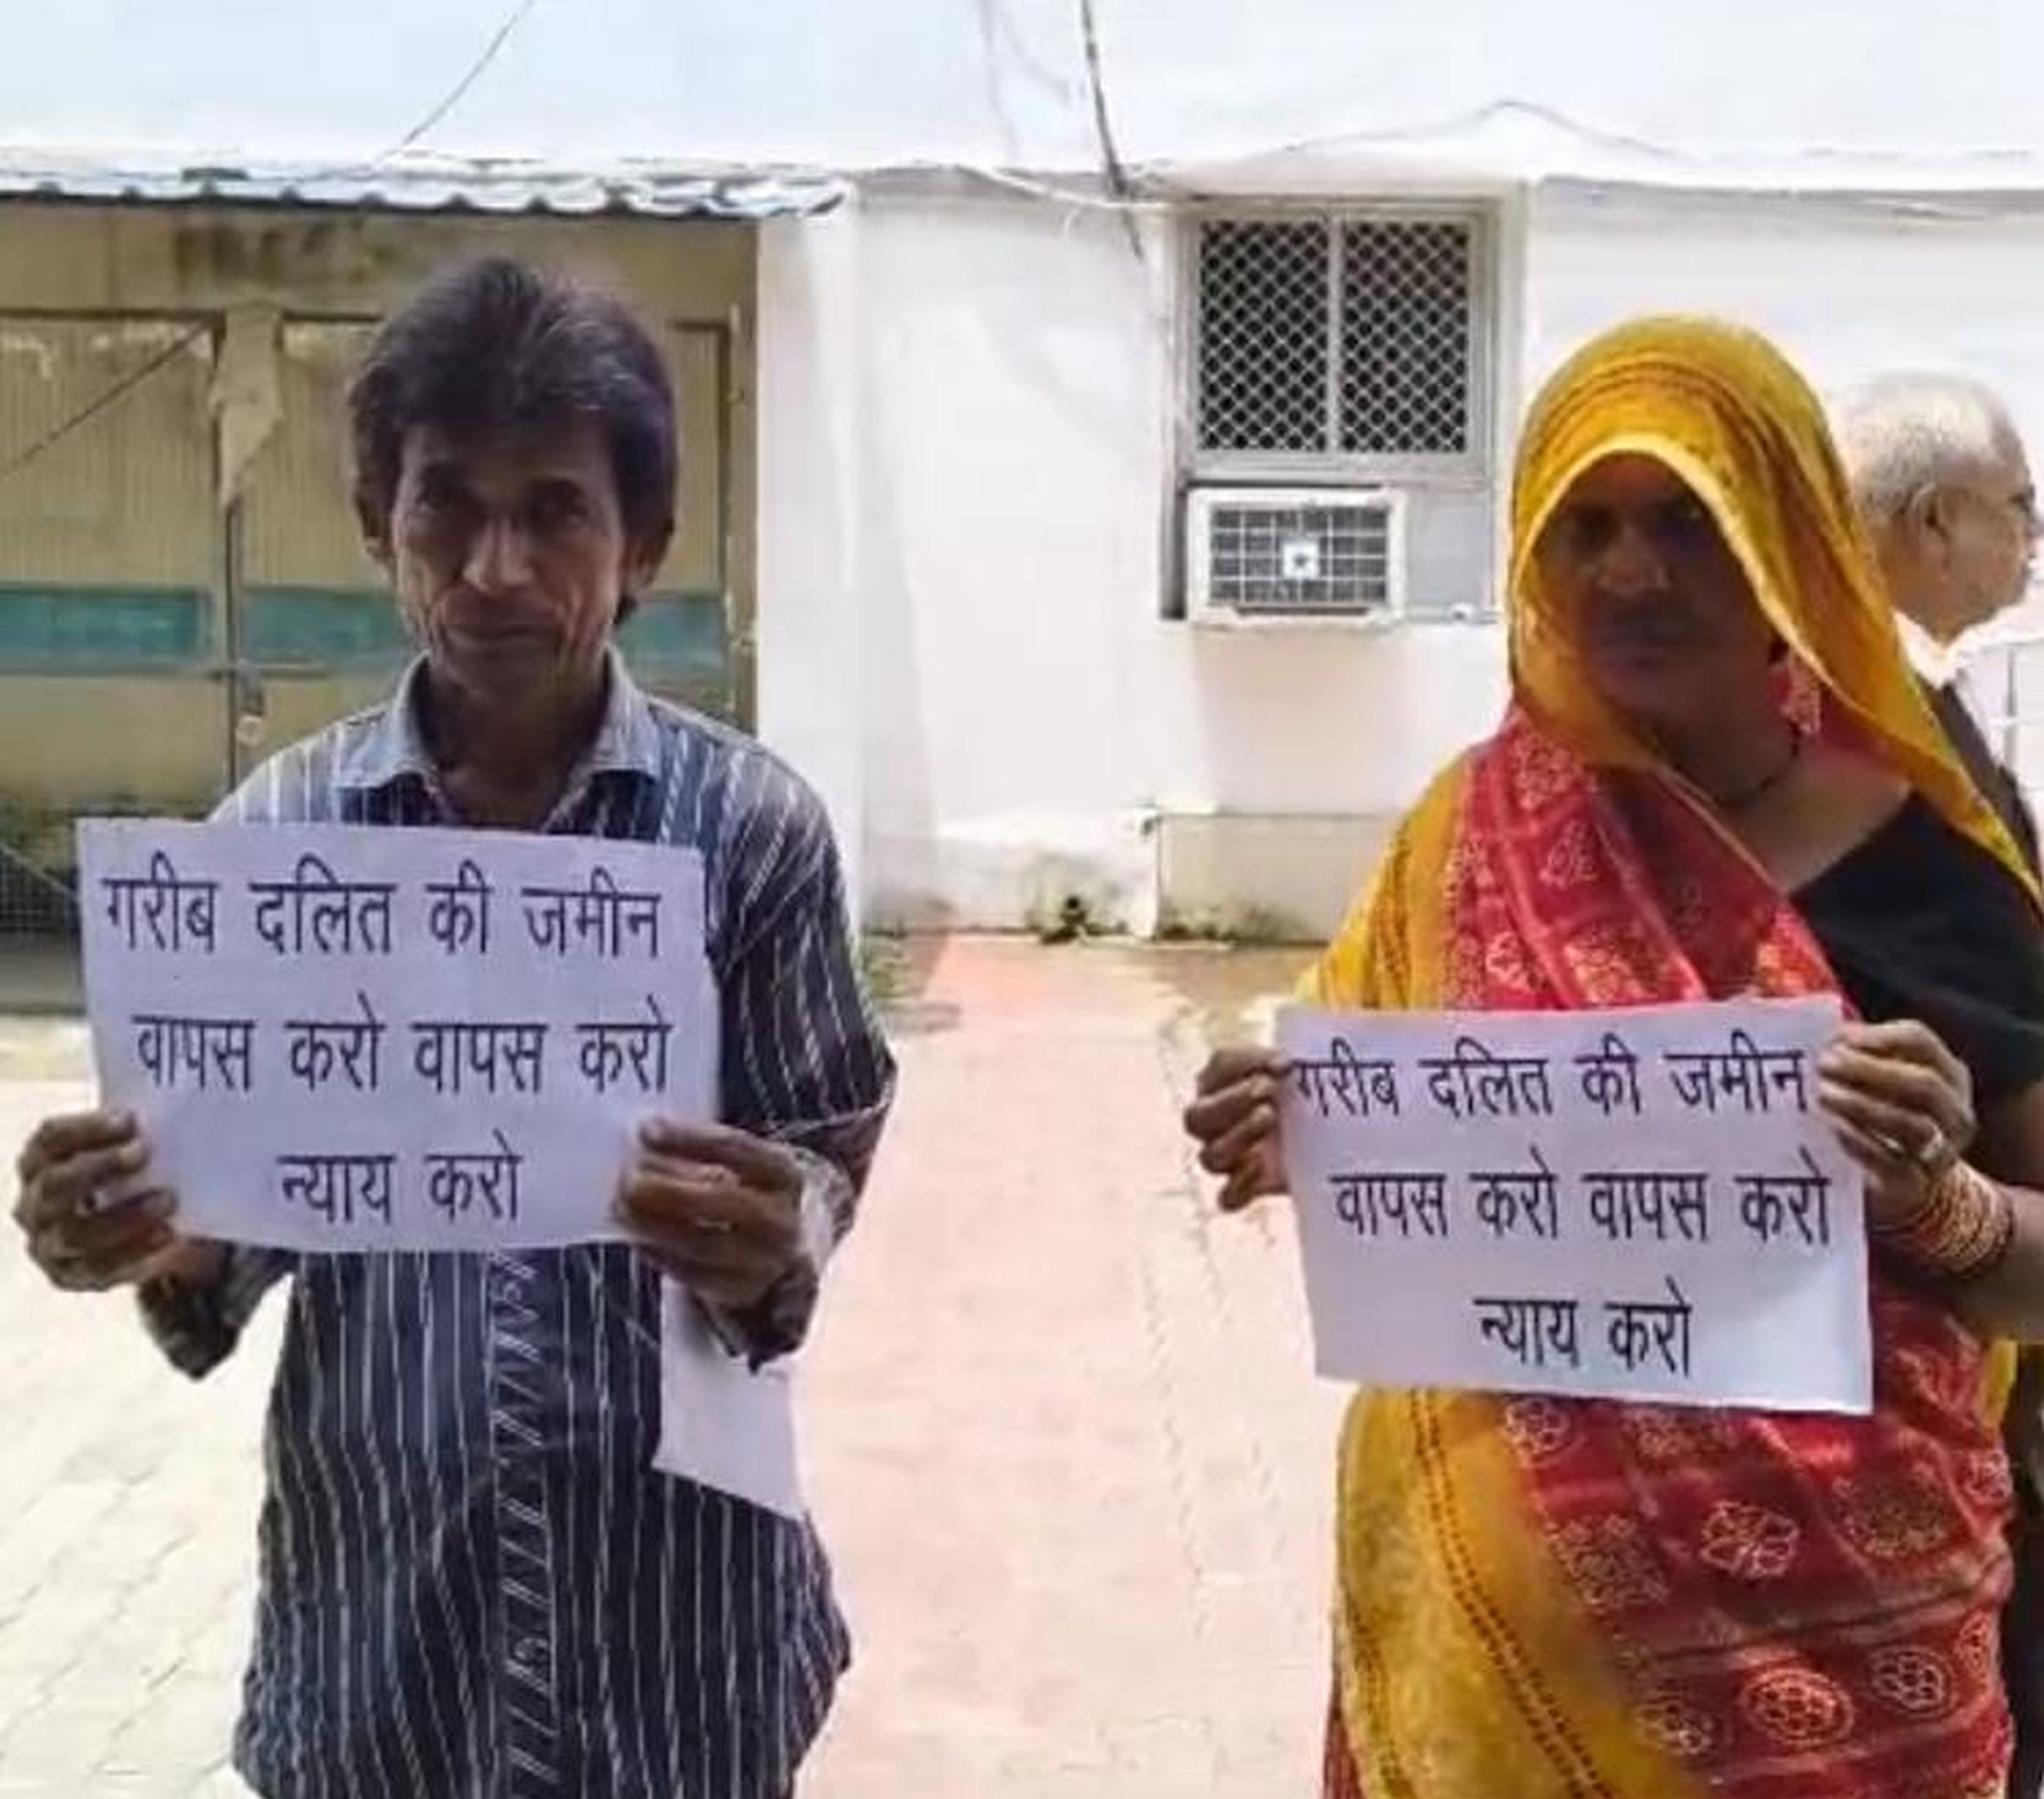 गरीब दलित की जमीन
वापस करो वापस करो
न्याय करो
गरीब दलित की जमीन
वापस करो वापस करो
न्याय करो